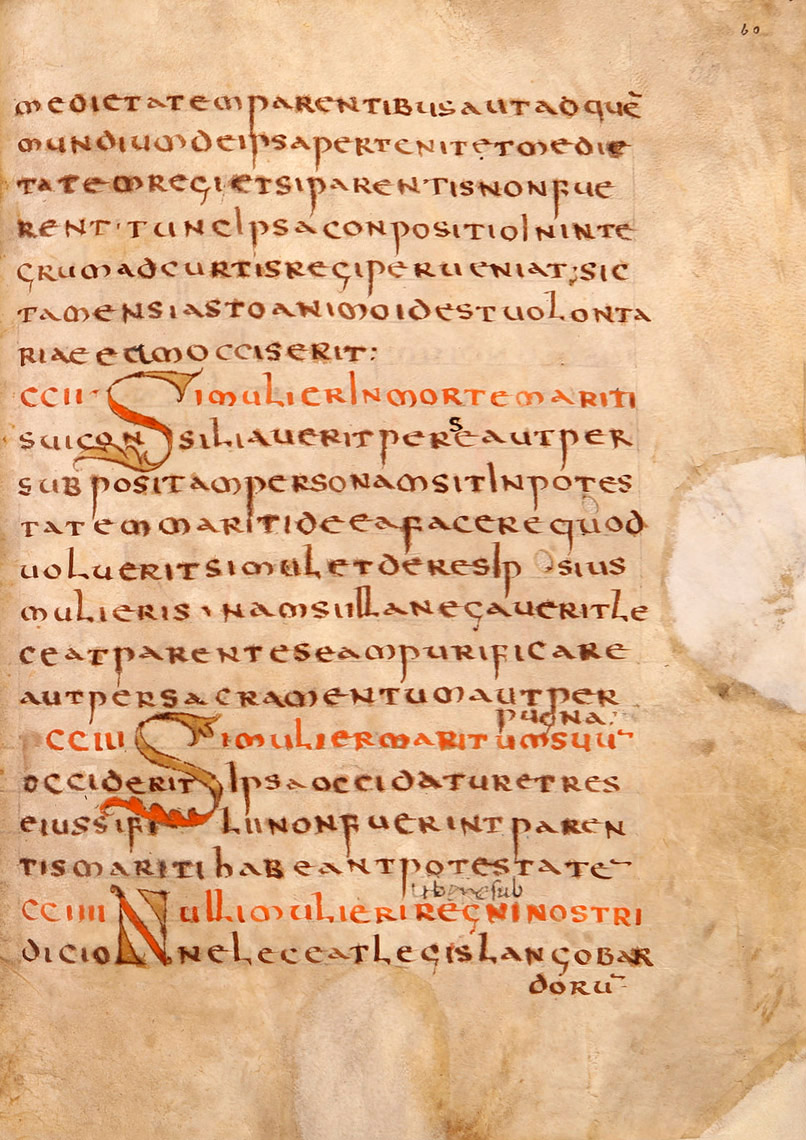 60
medietatemparentibusautadquē
mundiumdeipsapertenitetmedie
tatemregietsiparentisnonfue
rent·tuncipsaconpositioininte
grumadcurtisregiperueniat;sic
tamensiastoanimoidestuolonta
riaeeumocciserit:
CCII· Simulierinmortemariti
suiconsiliaueritperseautper
subpositampersonamsitinpotes
tatemmaritideeafacerequod
uolueritsimuletderesip sius
mulieris·namsillanegaueritle
ceatparenteseampurificare
autpersacramentumautper
pugna:
CCIII Simuliermaritumsuū
occideritipsaoccidaturetres
eiussifiliinonfuerintparen
tismaritihabeantpotestatē
CCIIII Nullimulieriregninostri
dicionneleceatlegislangobar
dorū